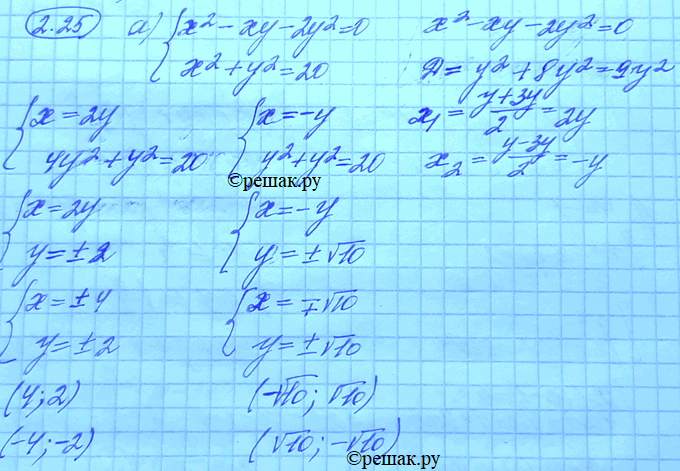 2.25 а) { x² - xy - 2y² = 0
x² + y² = 20
x² - xy - 2y² = 0
Д = y² + 8y² = 9y²
x₁ = (y+3y)/2 = 2y
x₂ = (y-3y)/2 = -y
{ x = 2y
4y² + y² = 20
{ x = -y
y² + y² = 20
©решак.ру
{ x = 2y
y = ± 2
{ x = -y
y = ± √10
{ x = ± 4
y = ± 2
{ x = ∓√10
y = ± √10
(4; 2)
(-4; -2)
(-√10; √10)
(√10; -√10)
©решак.ру